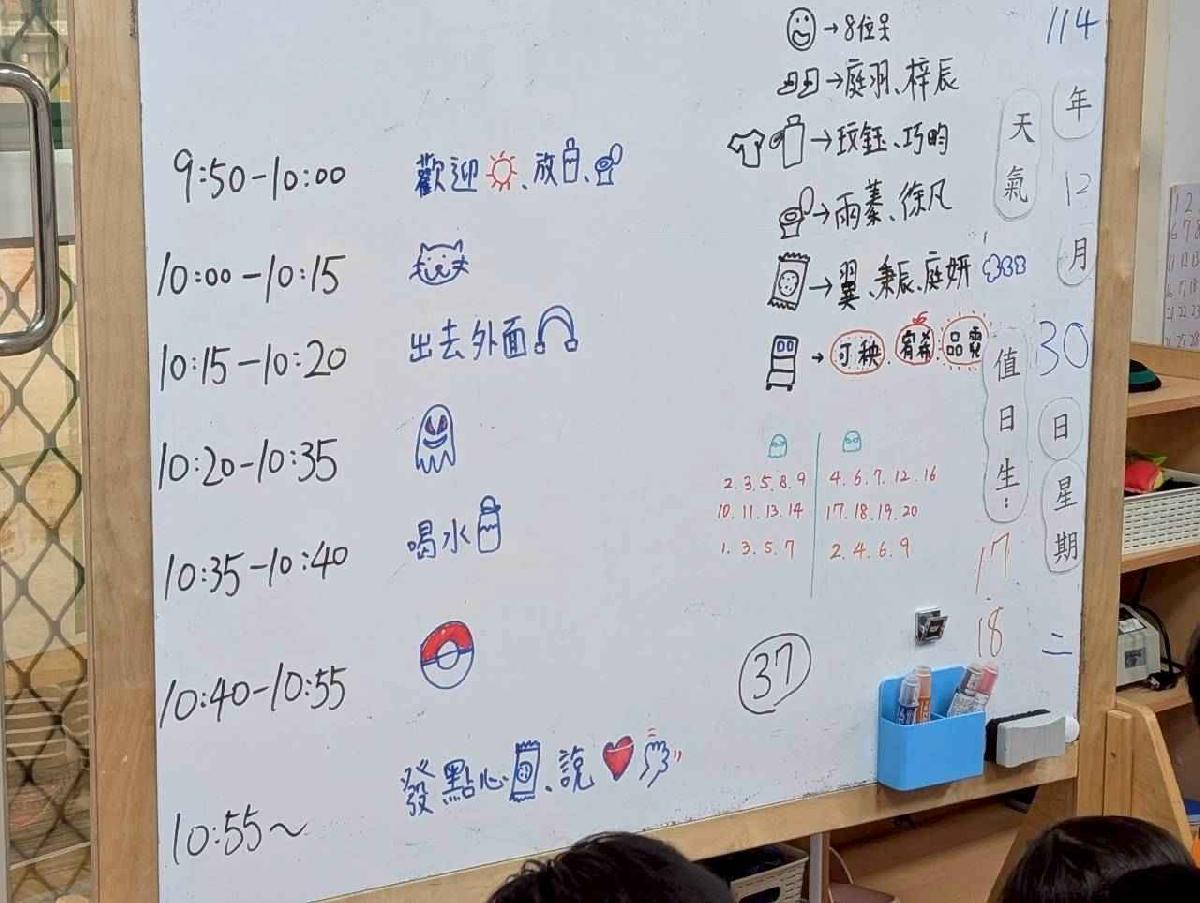 9:50-10:00 歡迎、放、
10:00-10:15
10:15-10:20 出去外面
10:20-10:35
10:35-10:40 喝水
10:40-10:55
10:55~ 發點心、說
→8位
→庭羽、梓辰
→玟鈺、巧昀
→雨蓁、徐凡
→翼、秉辰、庭妍
→可秧、宥希、品霓
2.3.5.8.9
10.11.13.14
1.3.5.7
4.6.7.12.16
17.18.19.20
2.4.6.9
37
天氣
值日生:
17
18
114
年
12
月
30
日
星期
二